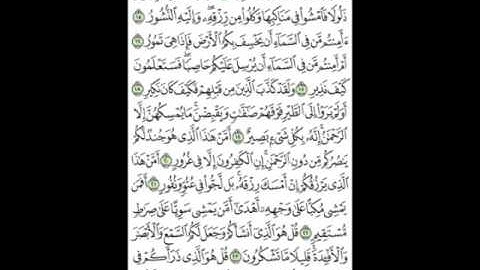 ذَلُولًا فَامْشُوا فِي مَنَاكِبِهَا وَكُلُوا مِن رِّزْقِهِ ۖ وَإِلَيْهِ النُّشُورُ ١٥
ءَأَمِنتُم مَّن فِي السَّمَاءِ أَن يَخْسِفَ بِكُمُ الْأَرْضَ فَإِذَا هِيَ تَمُورُ ١٦
أَمْ أَمِنتُم مَّن فِي السَّمَاءِ أَن يُرْسِلَ عَلَيْكُمْ حَاصِبًا ۖ فَسَتَعْلَمُونَ
كَيْفَ نَذِيرِ ١٧ وَلَقَدْ كَذَّبَ الَّذِينَ مِن قَبْلِهِمْ فَكَيْفَ كَانَ نَكِيرِ ١٨
أَوَلَمْ يَرَوْا إِلَى الطَّيْرِ فَوْقَهُمْ صَافَّاتٍ وَيَقْبِضْنَ ۚ مَا يُمْسِكُهُنَّ إِلَّا
الرَّحْمَٰنُ ۚ إِنَّهُ بِكُلِّ شَيْءٍ بَصِيرٌ ١٩ أَمَّنْ هَٰذَا الَّذِي هُوَ جُندٌ لَّكُمْ
يَنصُرُكُم مِّن دُونِ الرَّحْمَٰنِ ۚ إِنِ الْكَافِرُونَ إِلَّا فِي غُرُورٍ ٢٠ أَمَّنْ هَٰذَا
الَّذِي يَرْزُقُكُمْ إِنْ أَمْسَكَ رِزْقَهُ ۚ بَل لَّجُّوا فِي عُتُوٍّ وَنُفُورٍ ٢١ أَفَمَن
يَمْشِي مُكِبًّا عَلَىٰ وَجْهِهِ أَهْدَىٰ أَمَّن يَمْشِي سَوِيًّا عَلَىٰ صِرَاطٍ
مُّسْتَقِيمٍ ٢٢ قُلْ هُوَ الَّذِي أَنشَأَكُمْ وَجَعَلَ لَكُمُ السَّمْعَ وَالْأَبْصَارَ
وَالْأَفْئِدَةَ ۖ قَلِيلًا مَّا تَشْكُرُونَ ٢٣ قُلْ هُوَ الَّذِي ذَرَأَكُمْ فِي